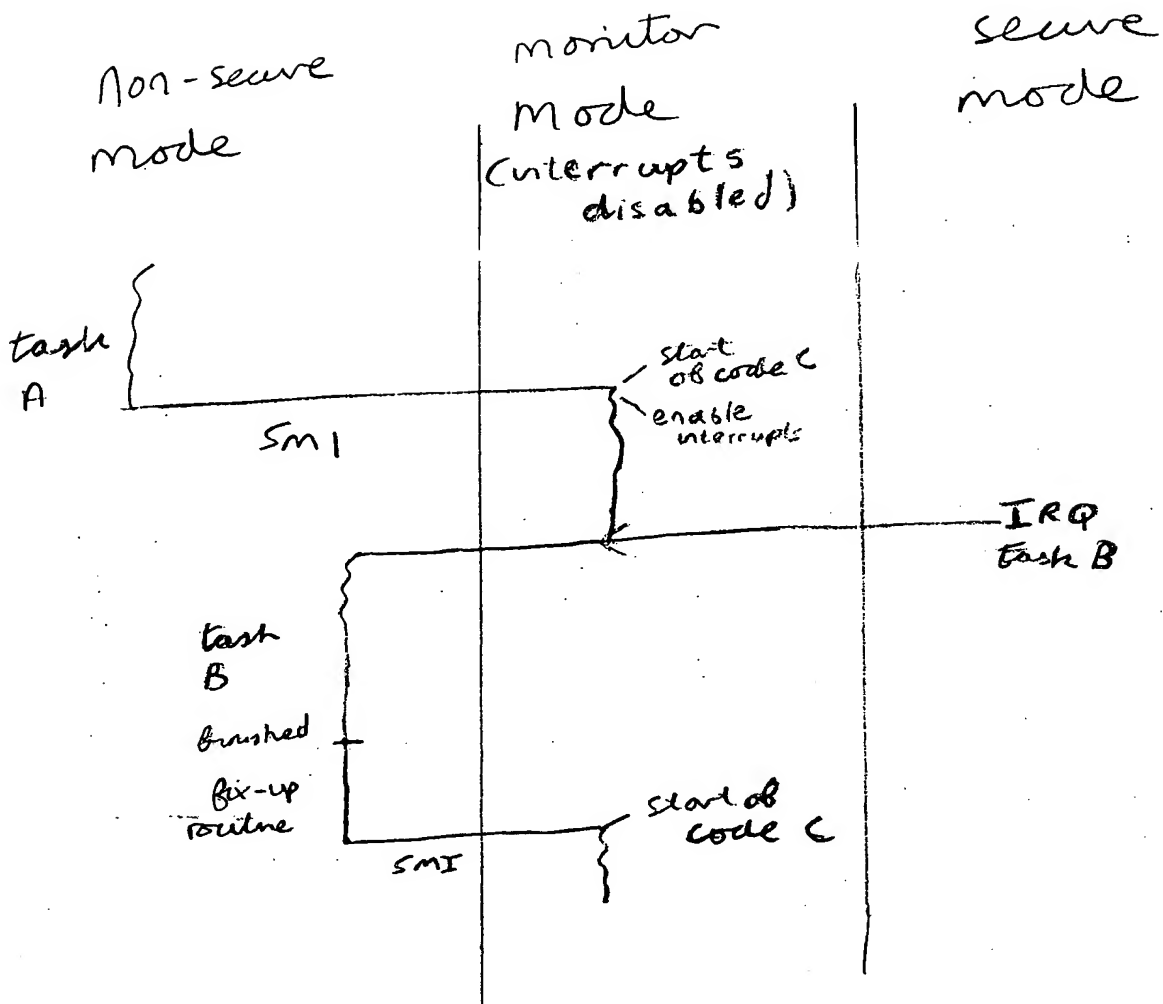 non-secure
mode
monitor
mode
(interrupts
disabled)
secure
mode
task
A
SMI
start
of code C
enable
interrupts
IRQ
task B
task
B
finished
fix-up
routine
SMI
start of
code C